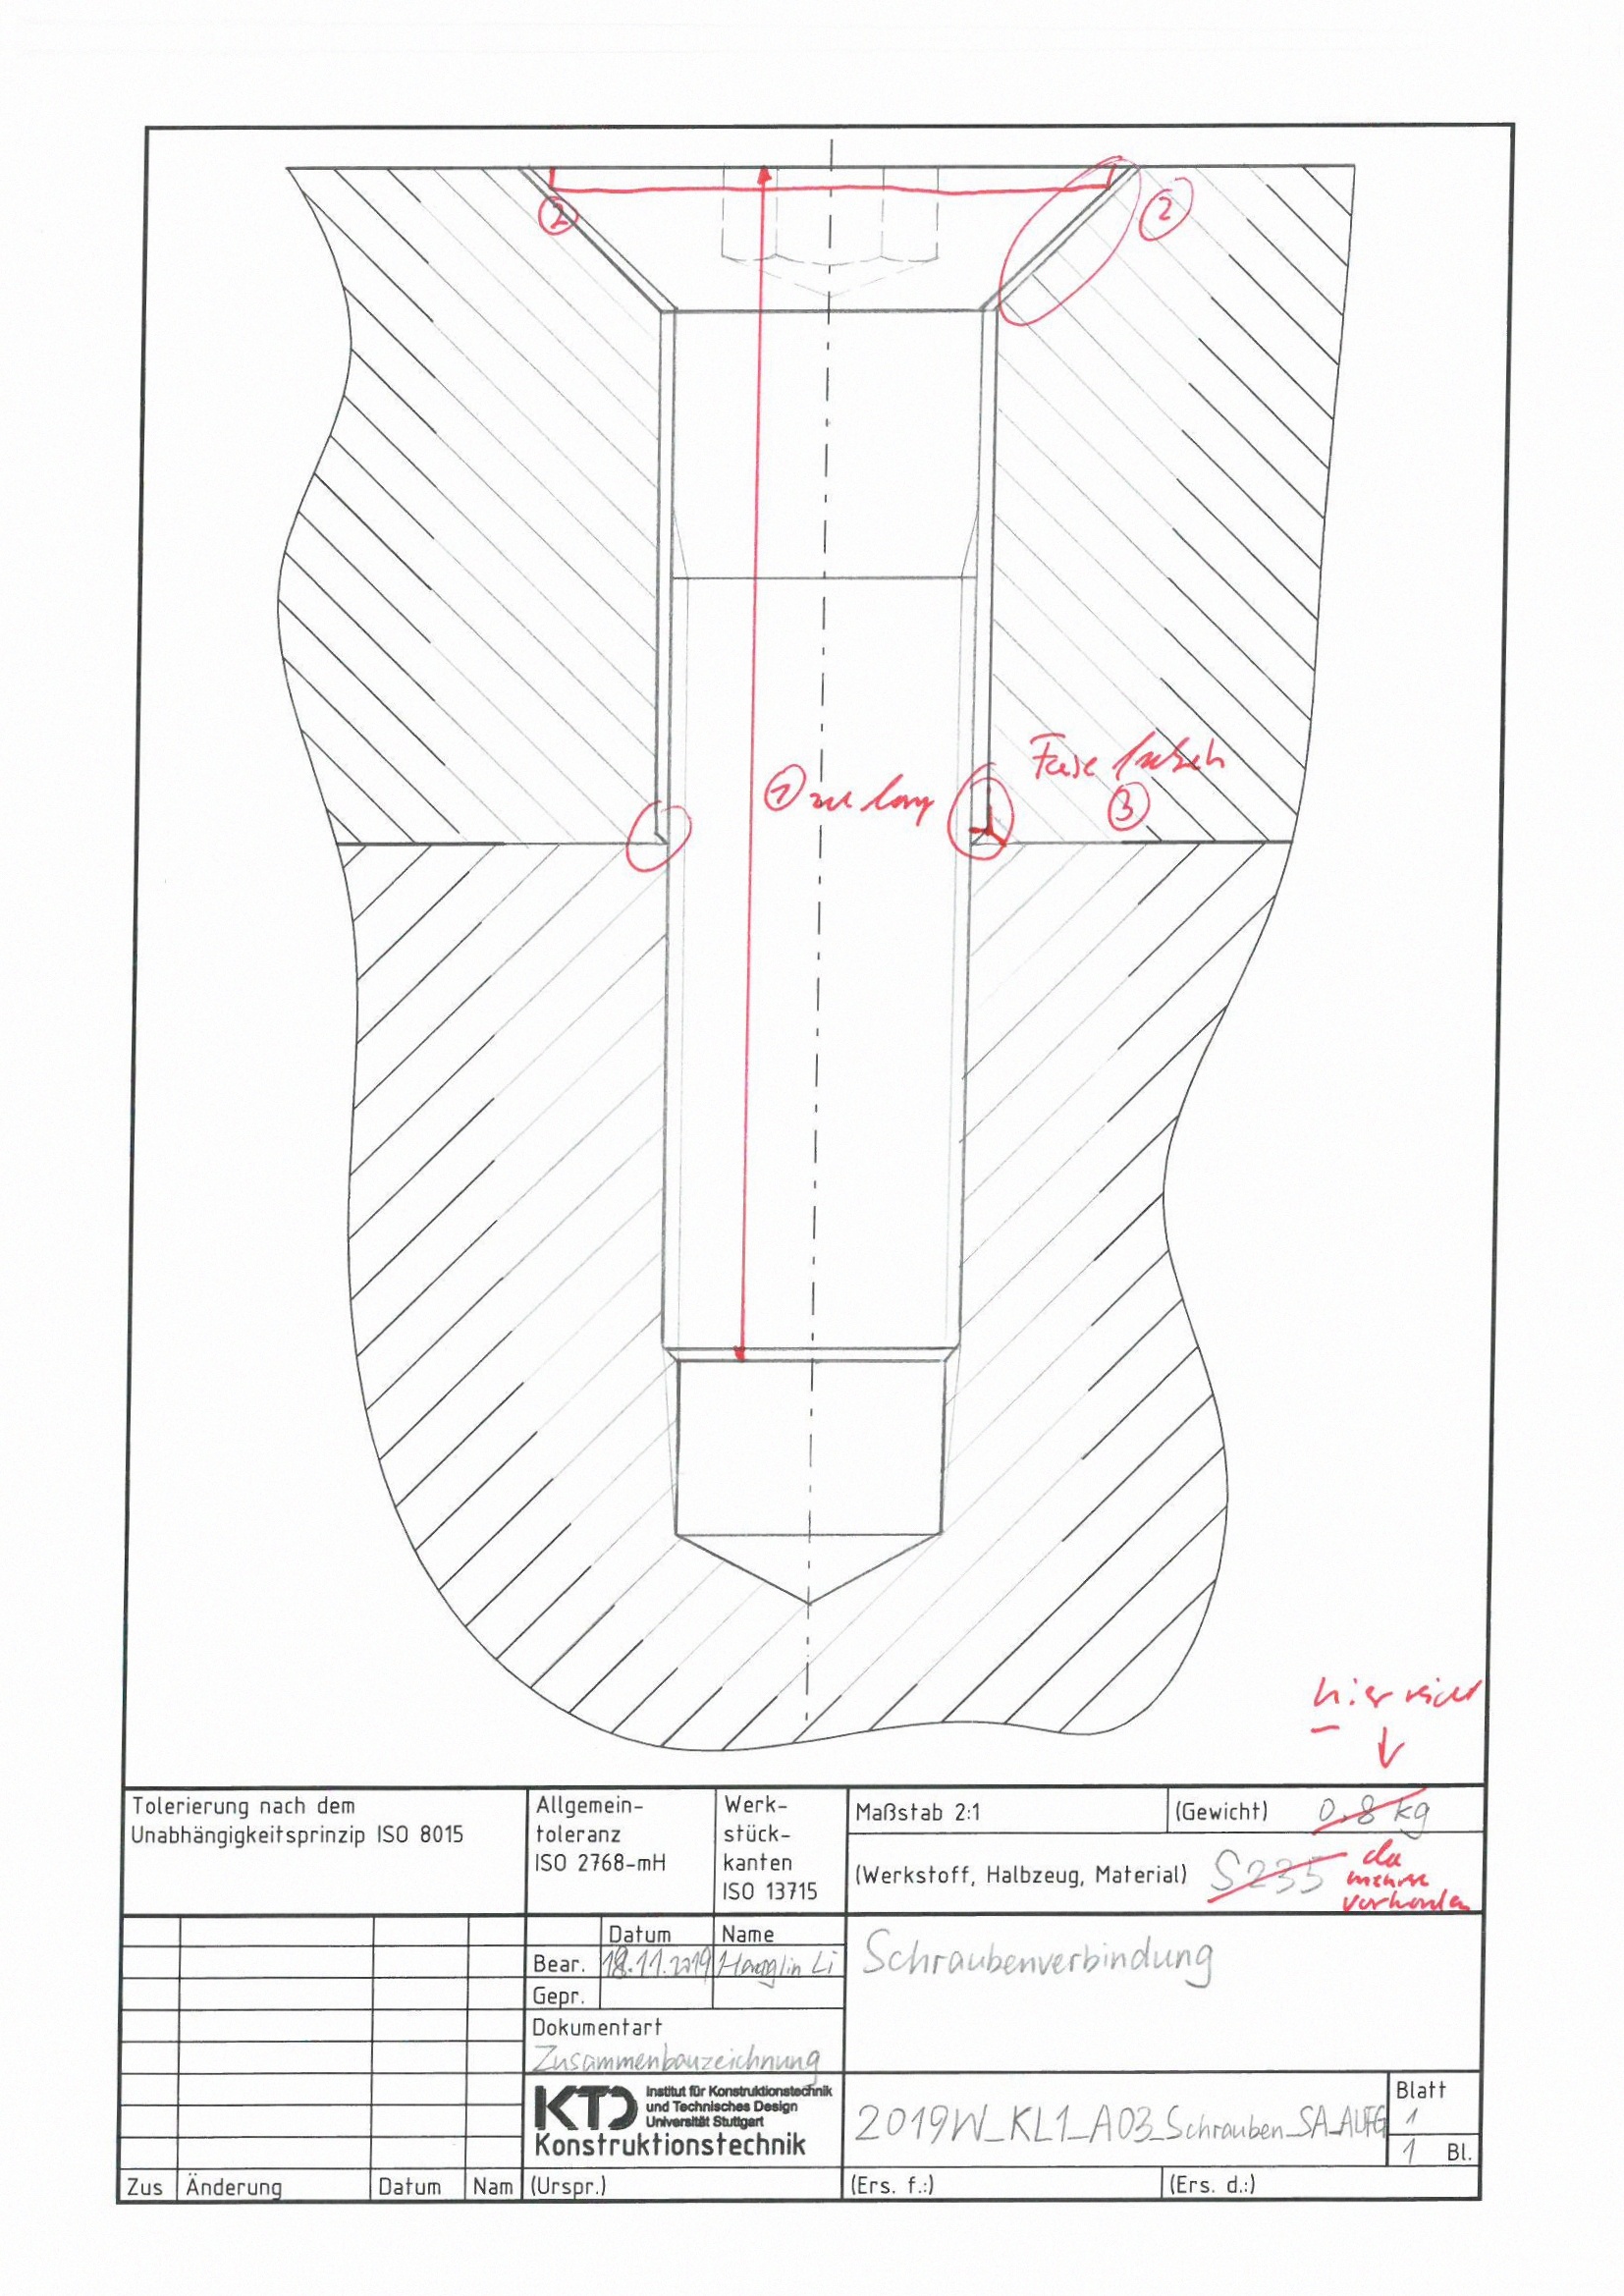 ②
②
① zu lang
Fase falsch
③
hier nicht
Tolerierung nach dem
Unabhängigkeitsprinzip ISO 8015
Allgemein-
toleranz
ISO 2768-mH
Werk-
stück-
kanten
ISO 13715
Maßstab 2:1
(Gewicht) 0.8 kg
(Werkstoff, Halbzeug, Material) S235
da
mehrere
vorhanden
Datum Name
Bear. 18.11.2019 Li
Gepr.
Dokumentart
Zusammenbauzeichnung
Schraubenverbindung
KTD Institut für Konstruktionstechnik
und Technisches Design
Universität Stuttgart
Konstruktionstechnik
2019W_KL1_A03_Schrauben_SA_AUFG
Blatt
1
1 Bl.
Zus Änderung Datum Nam (Urspr.) (Ers. f.:) (Ers. d.:)